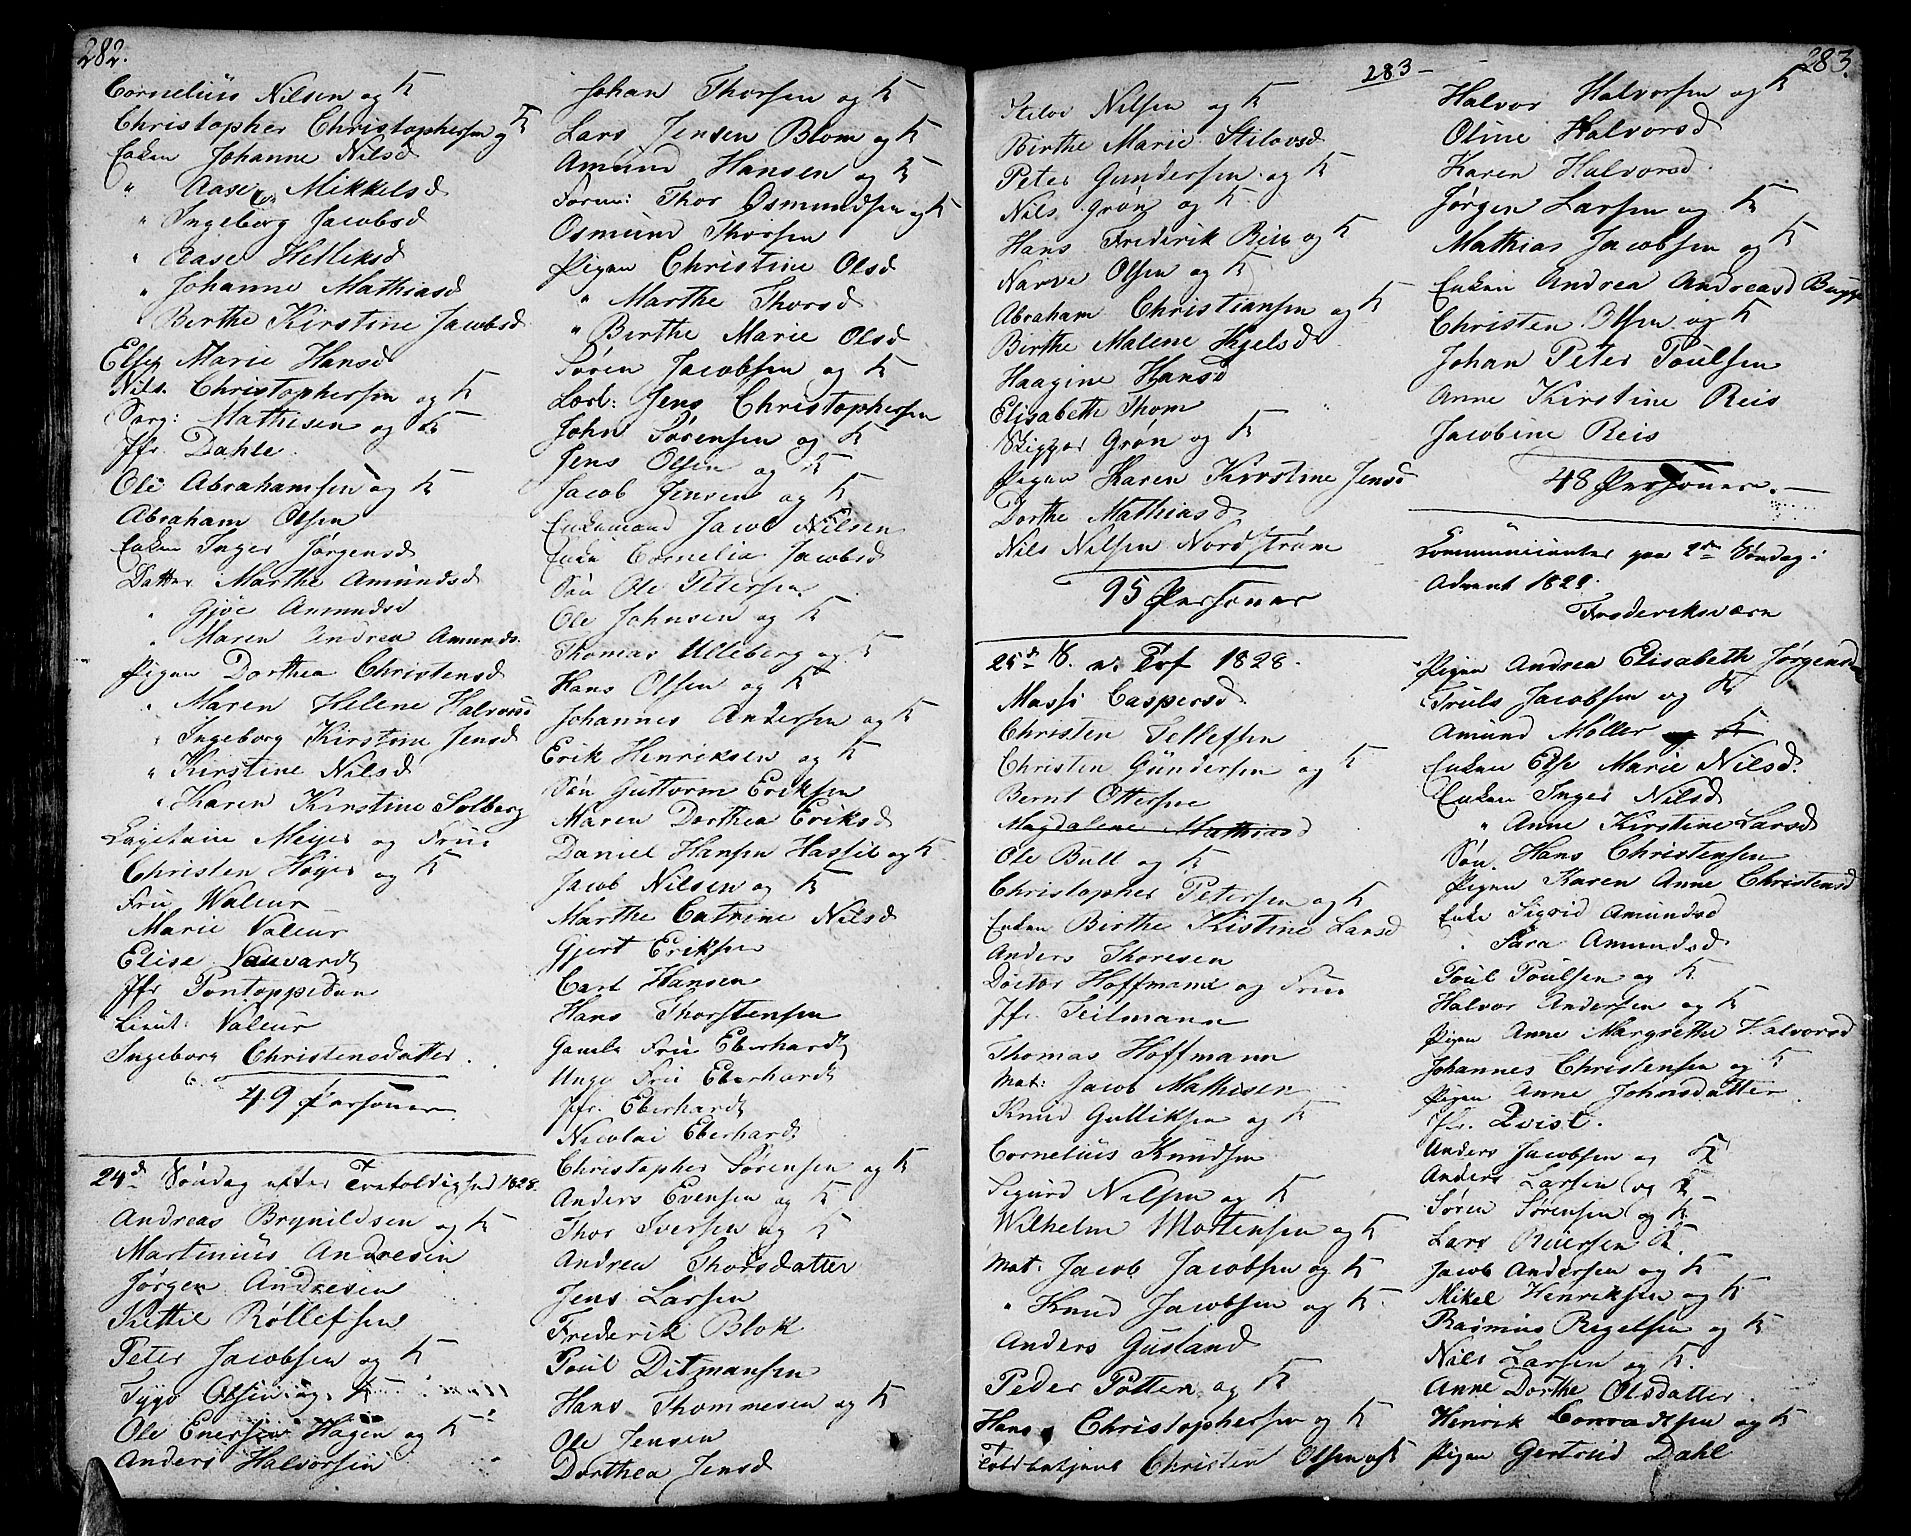 282.
Cornelius Nilsen og K
Christopher Christophersen og K
Enken Johanne Nilsd
" Aase Mikkelsd
" Ingeborg Jacobsd
" Aase Helliksd
" Johanne Mathiasd
" Berthe Kirstine Jacobsd
Else Marie Hansd
Nils Christophersen og K
Sarg: Mathisen og K
Jfr Dahle.
Ole Abrahamsen og K
Abraham Olsen
Enken Inger Jørgensd
Datter Marthe Amundsd
" Gjøe Amundsd
" Maren Andrea Amunds.
Pigen Dorthea Christensd
" Maren Helene Halvorsd
" Ingeborg Kirstine Jensd
" Kirstine Nilsd
" Karen Kirstine Solberg
Capitaine Meyer og Frue
Christen Høyer og K
Fru Valeur
Marie Valeur
Elise
Jfr Pontoppidan
Lieut: Valeur
Ingeborg Christensdatter.
49 Personer
24d Søndag efter Trefoldighed 1828.
Andreas Brynildsen og K
Martinius Andresen
Jørgen Andresen
Kettil Røllefsen
Peter Jacobsen og K
Tygo Olsen og K
Ole Enersen Hagen og K
Anders Halvorsen
Johan Thorsen og K
Lars Jensen Blom og K
Amund Hansen og K
Thor Osmundsen og K
Osmund Thorsen
Pigen Christine Olsd
" Marthe Thorsd
" Berthe Marie Olsd
Søren Jacobsen og K
Jens Christophersen
John Sørensen og K
Jens Olsen og K
Jacob Jensen og K
Enkemand Jacob Nilsen
Enke Cornelia Jacobsd
Søn Ole Petersen
Ole Johnsen og K
Thomas Ulleberg og K
Hans Olsen og K
Johannes Andersen og K
Erik Henriksen og K
Søn Guttorm Eriksen
Maren Dorthea Eriksd
Daniel Hansen Hassil og K
Jacob Nilsen og K
Marthe Catrine Nilsd
Gjert Eriksen
Carl Hansen
Hans Thorstensen
Gamle Fru Eberhardt
Unge Fru Eberhardt
Jfr: Eberhardt
Nicolai Eberhardt
Christopher Sørensen og K
Anders Evensen og K
Thor Iversen og K
Andrea Thorsdatter
Jens Larsen
Frederik Blok
Poul Ditmansen
Hans Thommesen og K
Ole Jensen
Dorthea Jensd
283
283.
Stilov Nilsen og K
Birthe Marie Stilovsd
Peter Gundersen og K
Nils Grøn og K
Hans Frederik Reis og K
Narve Olsen og K
Abraham Christiansen og K
Birthe Malene Kjelsd
Haagine Hansd
Elisabeth Thom
Grøn og K
Pigen Karen Kirstine Jensd
Dorthe Mathiasd
Nils Nilsen Nordstrøm
95 Personer
25d S. n. Tref 1828.
Massi Caspersd
Christen Tellefsen
Christen Gundersen og K
Bernt Ottersen
Magdalene Mathiasd
Ole Bull og K
Christopher Petersen og K
Enken Birthe Kistine Larsd
Anders Thoresen
Doctor Hoffmann og Frue
Jfr. Teilmann
Thomas Hoffmann
Mat: Jacob Mathisen
Knud Gulliksen og K
Cornelius Knudsen
Sigurd Nilsen og K
Wilhelm Mortensen og K
Mat: Jacob Jacobsen og K
" Knud Jacobsen og K
Anders Gusland
Peder Potten og K
Hans Christophersen og K
Toldbetjent Christen Olsen og K
Halvor Halvorsen og K
Oline Halvorsd
Karen Halvorsd
Jørgen Larsen og K
Mathias Jacobsen og K
Enken Andrea Andreasd Bugge
Christen Olsen og K
Johan Peter Poulsen
Anne Kirstine Reis
Jacobine Reis
48 Personer.
Communicanter paa 2den Søndag i
Advent 1828.
Frederiksværn
Pigen Andrea Elisabeth Jørgensd
Truls Jacobsen og K
Amund Møller og K
Enken Else Marie Nilsd.
Enken Inger Nilsd
" Anne Kirstine Larsd
Søn Hans Christensen
Pigen Karen Anne Christensd
Enke Sigrid Amundsd
" Sara Amundsd
Poul Poulsen og K
Halvor Andersen og K
Pigen Anne Margrethe Halvorsd
Johannes Christensen og K
Pigen Anne Johnsdatter.
Jfr. Qvist.
Anders Jacobsen og K
Anders Larsen og K
Søren Sørensen og K
Lars Riiersen K.
Jacob Andersen og K
Mikel Henriksen og K
Rasmus Regelsen og K
Nils Larsen og K.
Anne Dorthe Olsdatter.
Henrik Conradsen og K
Pigen Gertrud Dahl